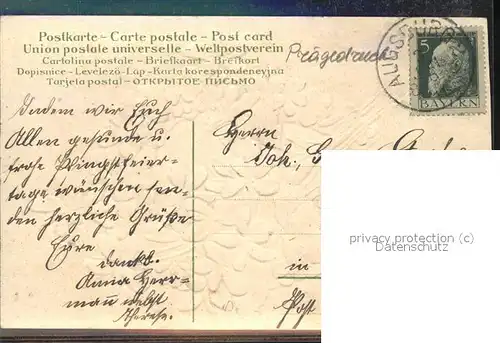 Postkarte – Carte postale – Post card
Union postale universelle – Weltpostverein
Cartolina postale – Briefkaart – Brefkort
Dopisnice – Levelező-Lap – Karta korespondencyjna
Tarjeta postal – ОТКРЫТОЕ ПИСЬМО
Prägedruck
AUGSBURG
5
BAYERN
Indem wir Euch
Allen gesunde u.
frohe Pfingstfeier-
tage wünschen sen-
den herzliche Grüße
Eure
dankb.
Anna Herr-
mann nebst
Therese.
Herrn
Joh.
in
Post
privacy protection (c)
Datenschutz